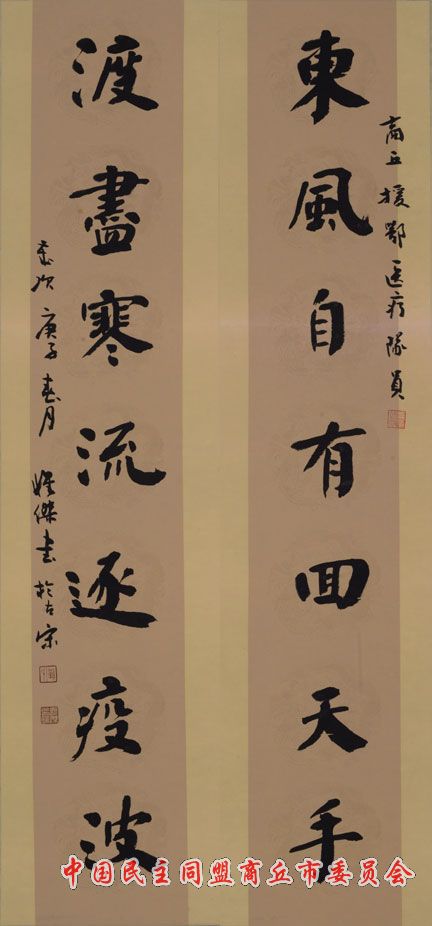 商丘援鄂医疗隊員
東風自有回天手
渡盡寒流逐疫波
歲次庚子春月
傑書於古宋
中国民主同盟商丘市委员会